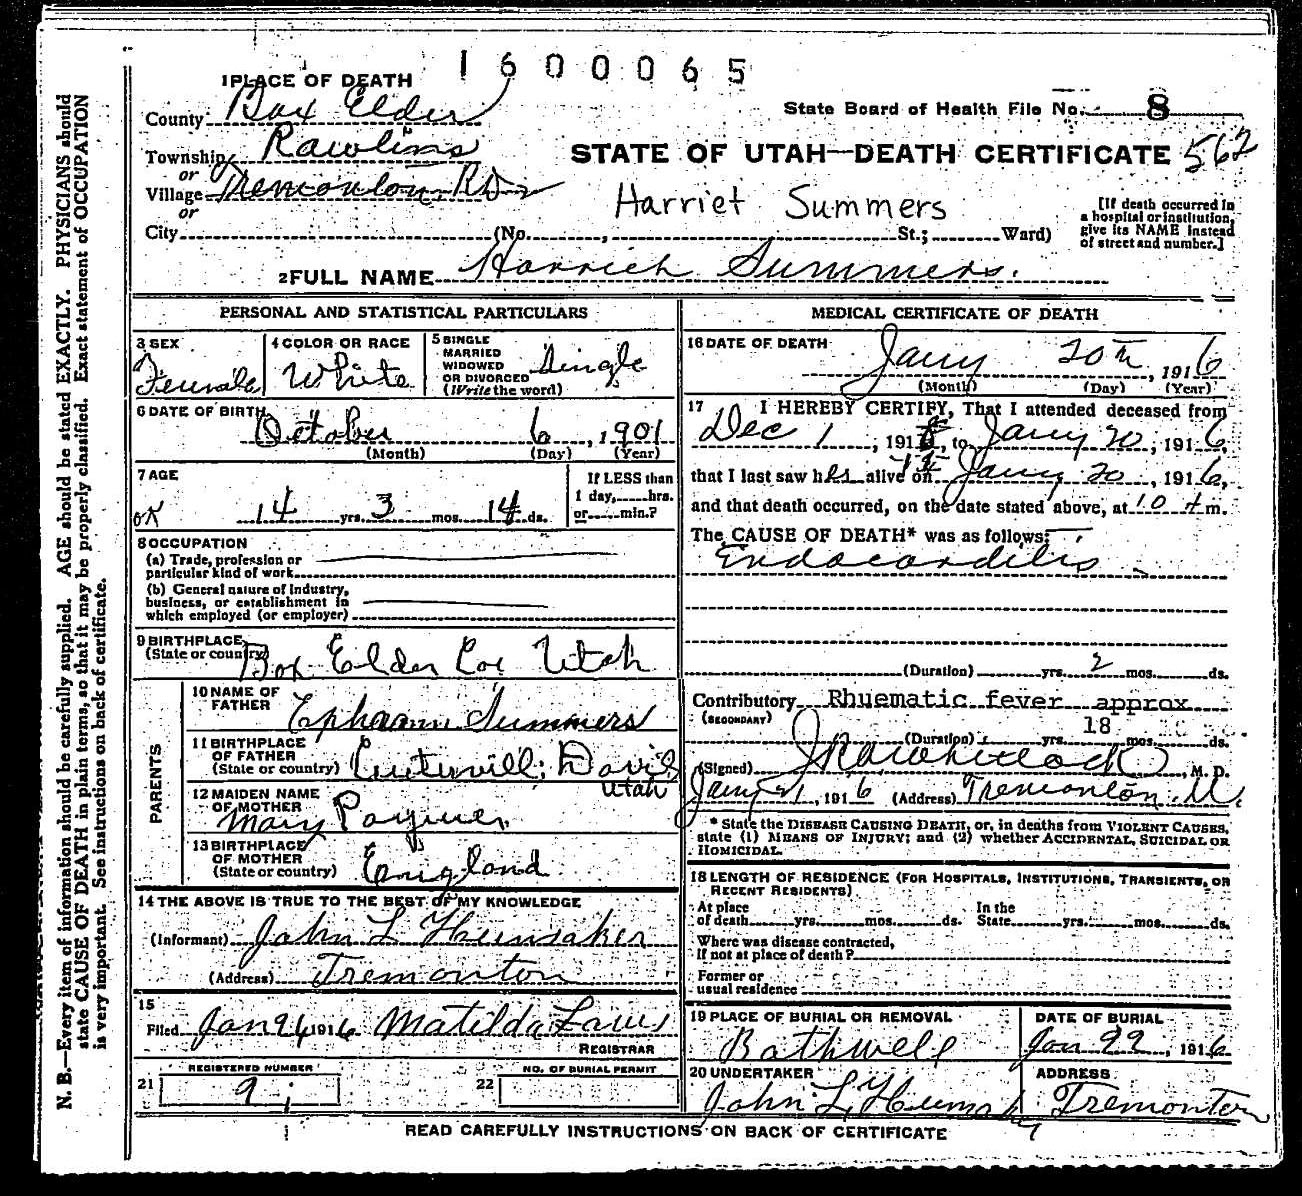 1600065
1 PLACE OF DEATH
State Board of Health File No. 8
County Box Elder
Township Rawlins
or
STATE OF UTAH—DEATH CERTIFICATE 562
Village Tremonton, RD 2
or
Harriet Summers
[If death occurred in
a hospital or institution,
give its NAME instead
of street and number.]
City (No. , St.; Ward)
2 FULL NAME Harriet Summers.
PERSONAL AND STATISTICAL PARTICULARS
3 SEX
Female
4 COLOR OR RACE
White
5 SINGLE
MARRIED
WIDOWED
OR DIVORCED
(Write the word)
Single
6 DATE OF BIRTH
October 6, 1901
(Month) (Day) (Year)
7 AGE
OK 14 yrs. 3 mos. 14 ds.
If LESS than
1 day, hrs.
or min.?
8 OCCUPATION
(a) Trade, profession or
particular kind of work
(b) General nature of Industry,
business, or establishment in
which employed (or employer)
9 BIRTHPLACE
(State or country) Box Elder Co. Utah
PARENTS
10 NAME OF
FATHER Summers
11 BIRTHPLACE
OF FATHER
(State or country) Davis
Utah
12 MAIDEN NAME
OF MOTHER
Mary
13 BIRTHPLACE
OF MOTHER
(State or country) England
14 THE ABOVE IS TRUE TO THE BEST OF MY KNOWLEDGE
(Informant) John L Hunsaker
(Address) Tremonton
15
Filed Jan 24 1916 Matilda Laws
REGISTRAR
REGISTERED NUMBER
21 9
NO. OF BURIAL PERMIT
22
MEDICAL CERTIFICATE OF DEATH
16 DATE OF DEATH
Jany 20th, 1916
(Month) (Day) (Year)
17 I HEREBY CERTIFY, That I attended deceased from
Dec 1, 191 , to Jany 20, 1916,
that I last saw her alive on Jany 20, 1916,
and that death occurred, on the date stated above, at 10 A m.
The CAUSE OF DEATH* was as follows:
Endocarditis
(Duration) yrs. 2 mos. ds.
Contributory Rhuematic fever approx
(SECONDARY) 18
(Duration) yrs. mos. ds.
(Signed) , M. D.
Jany 21, 1916 (Address) Tremonton, U.
* State the DISEASE CAUSING DEATH, or, in deaths from VIOLENT CAUSES,
state (1) MEANS OF INJURY; and (2) whether ACCIDENTAL, SUICIDAL OR
HOMICIDAL.
18 LENGTH OF RESIDENCE (FOR HOSPITALS, INSTITUTIONS, TRANSIENTS, OR
RECENT RESIDENTS)
At place In the
of death yrs. mos. ds. State yrs. mos. ds.
Where was disease contracted,
If not at place of death?
Former or
usual residence
19 PLACE OF BURIAL OR REMOVAL
Bothwell
DATE OF BURIAL
Jan 22, 1916
20 UNDERTAKER
John L
ADDRESS
Tremonton
READ CAREFULLY INSTRUCTIONS ON BACK OF CERTIFICATE
N. B.—Every item of information should be carefully supplied. AGE should be stated EXACTLY. PHYSICIANS should
state CAUSE OF DEATH in plain terms, so that it may be properly classified. Exact statement of OCCUPATION
is very important. See instructions on back of certificate.